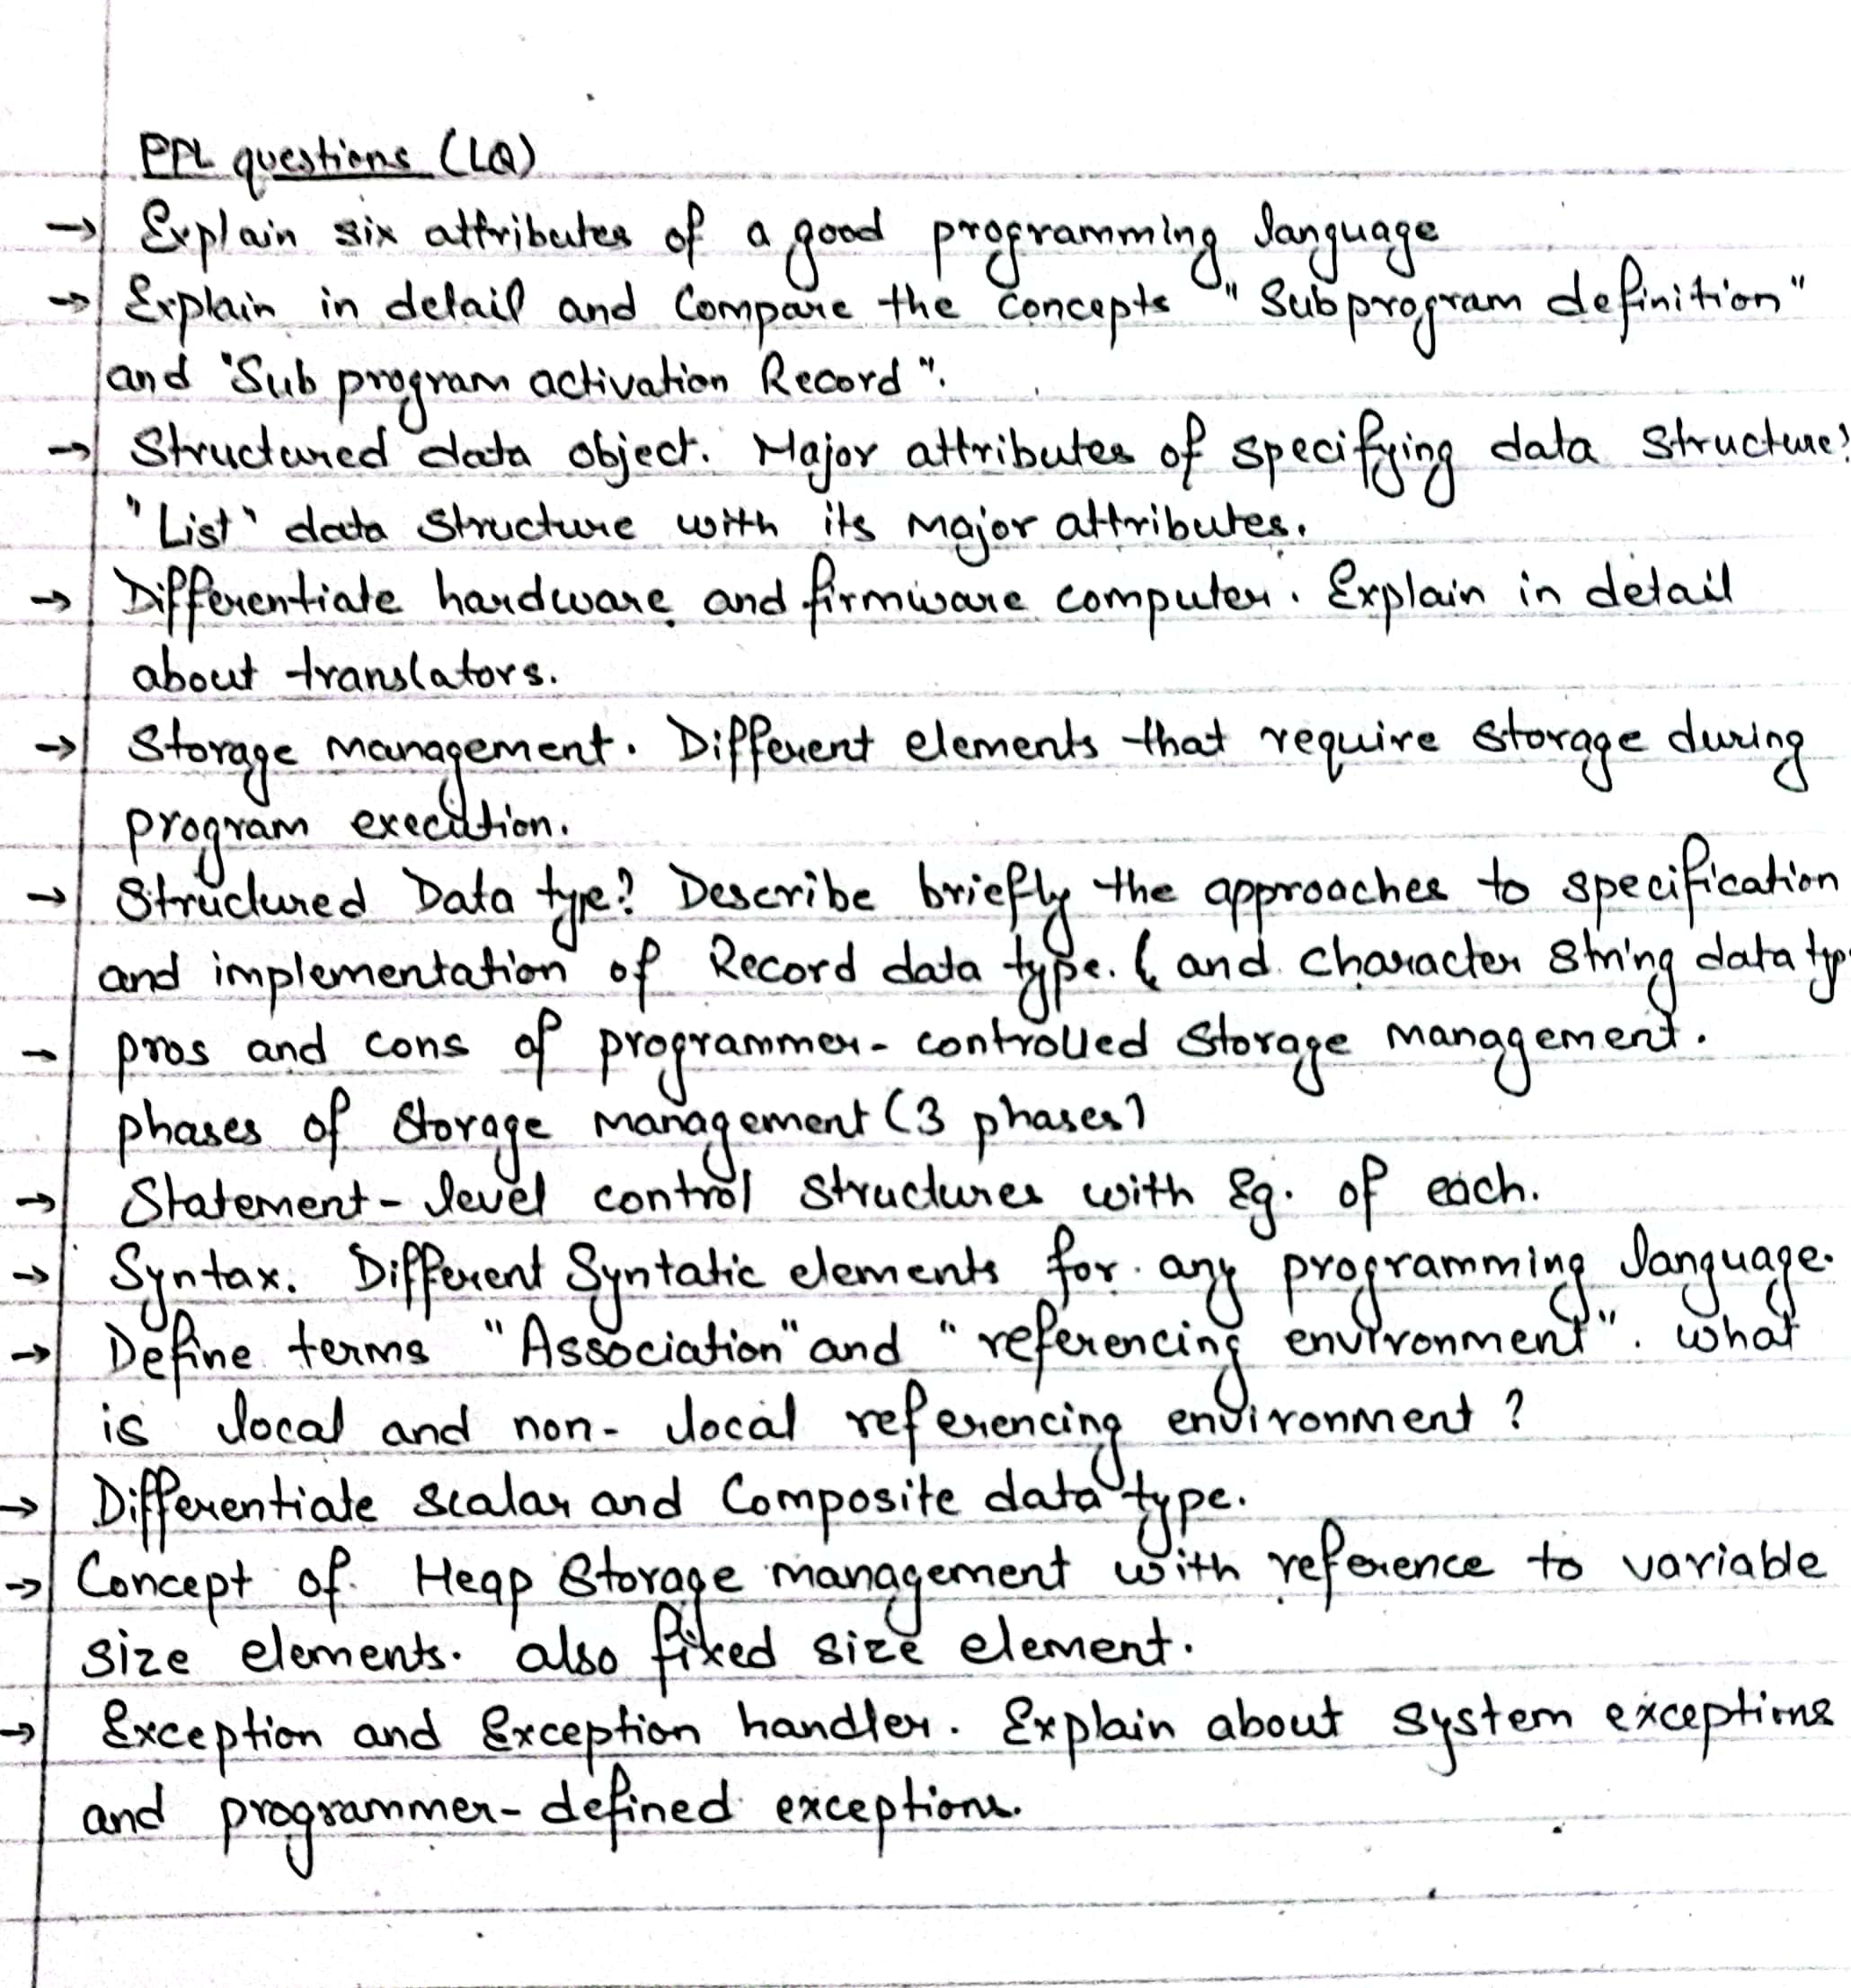 PPL questions (LQ)
→ Explain six attributes of a good programming language
→ Explain in detail and Compare the concepts "Subprogram definition"
and "Sub program activation Record".
→ Structured data object. Major attributes of specifying data structure?
"List" data structure with its major attributes.
→ Differentiate hardware and firmware computer. Explain in detail
about translators.
→ Storage management. Different elements that require storage during
program execution.
→ Structured Data type? Describe briefly the approaches to specification
and implementation of Record data type. ( and character string data typ
→ pros and cons of programmer-controlled storage management.
phases of storage management (3 phases)
→ Statement-level control structures with Eg. of each.
→ Syntax. Different Syntatic elements for any programming language.
→ Define terms "Association" and "referencing environment". What
is local and non-local referencing environment?
→ Differentiate scalar and Composite data type.
→ Concept of Heap Storage management with reference to variable
size elements. also fixed size element.
→ Exception and Exception handler. Explain about system exceptions
and programmer-defined exceptions.